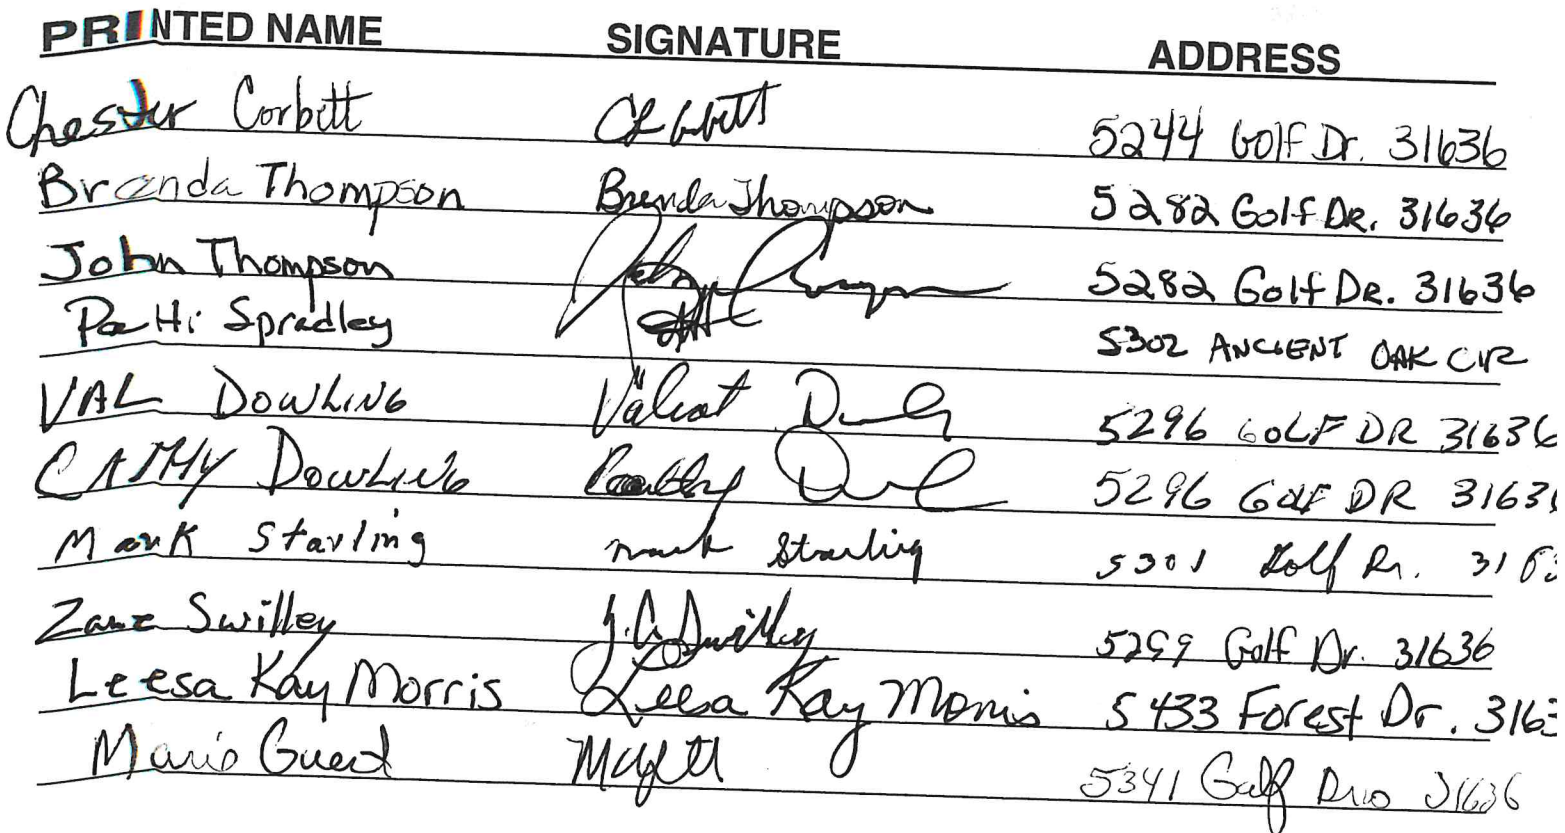 PRINTED NAME SIGNATURE ADDRESS
Chester Corbett 5244 Golf Dr. 31636
Brenda Thompson Brenda Thompson 5282 Golf DR. 31636
John Thompson John Thompson 5282 Golf DR. 31636
Patti Spradley 5302 ANCIENT OAK CIR
VAL DOWLING 5296 GOLF DR 31636
CATHY DOWLING 5296 GOLF DR 3163
Mark Starling mark Starling 5301 Golf Dr. 3163
Zane Swilley Swilley 5299 Golf Dr. 31636
Leesa Kay Morris Leesa Kay Morris 5433 Forest Dr. 3163
Mario 5341 Golf 31636